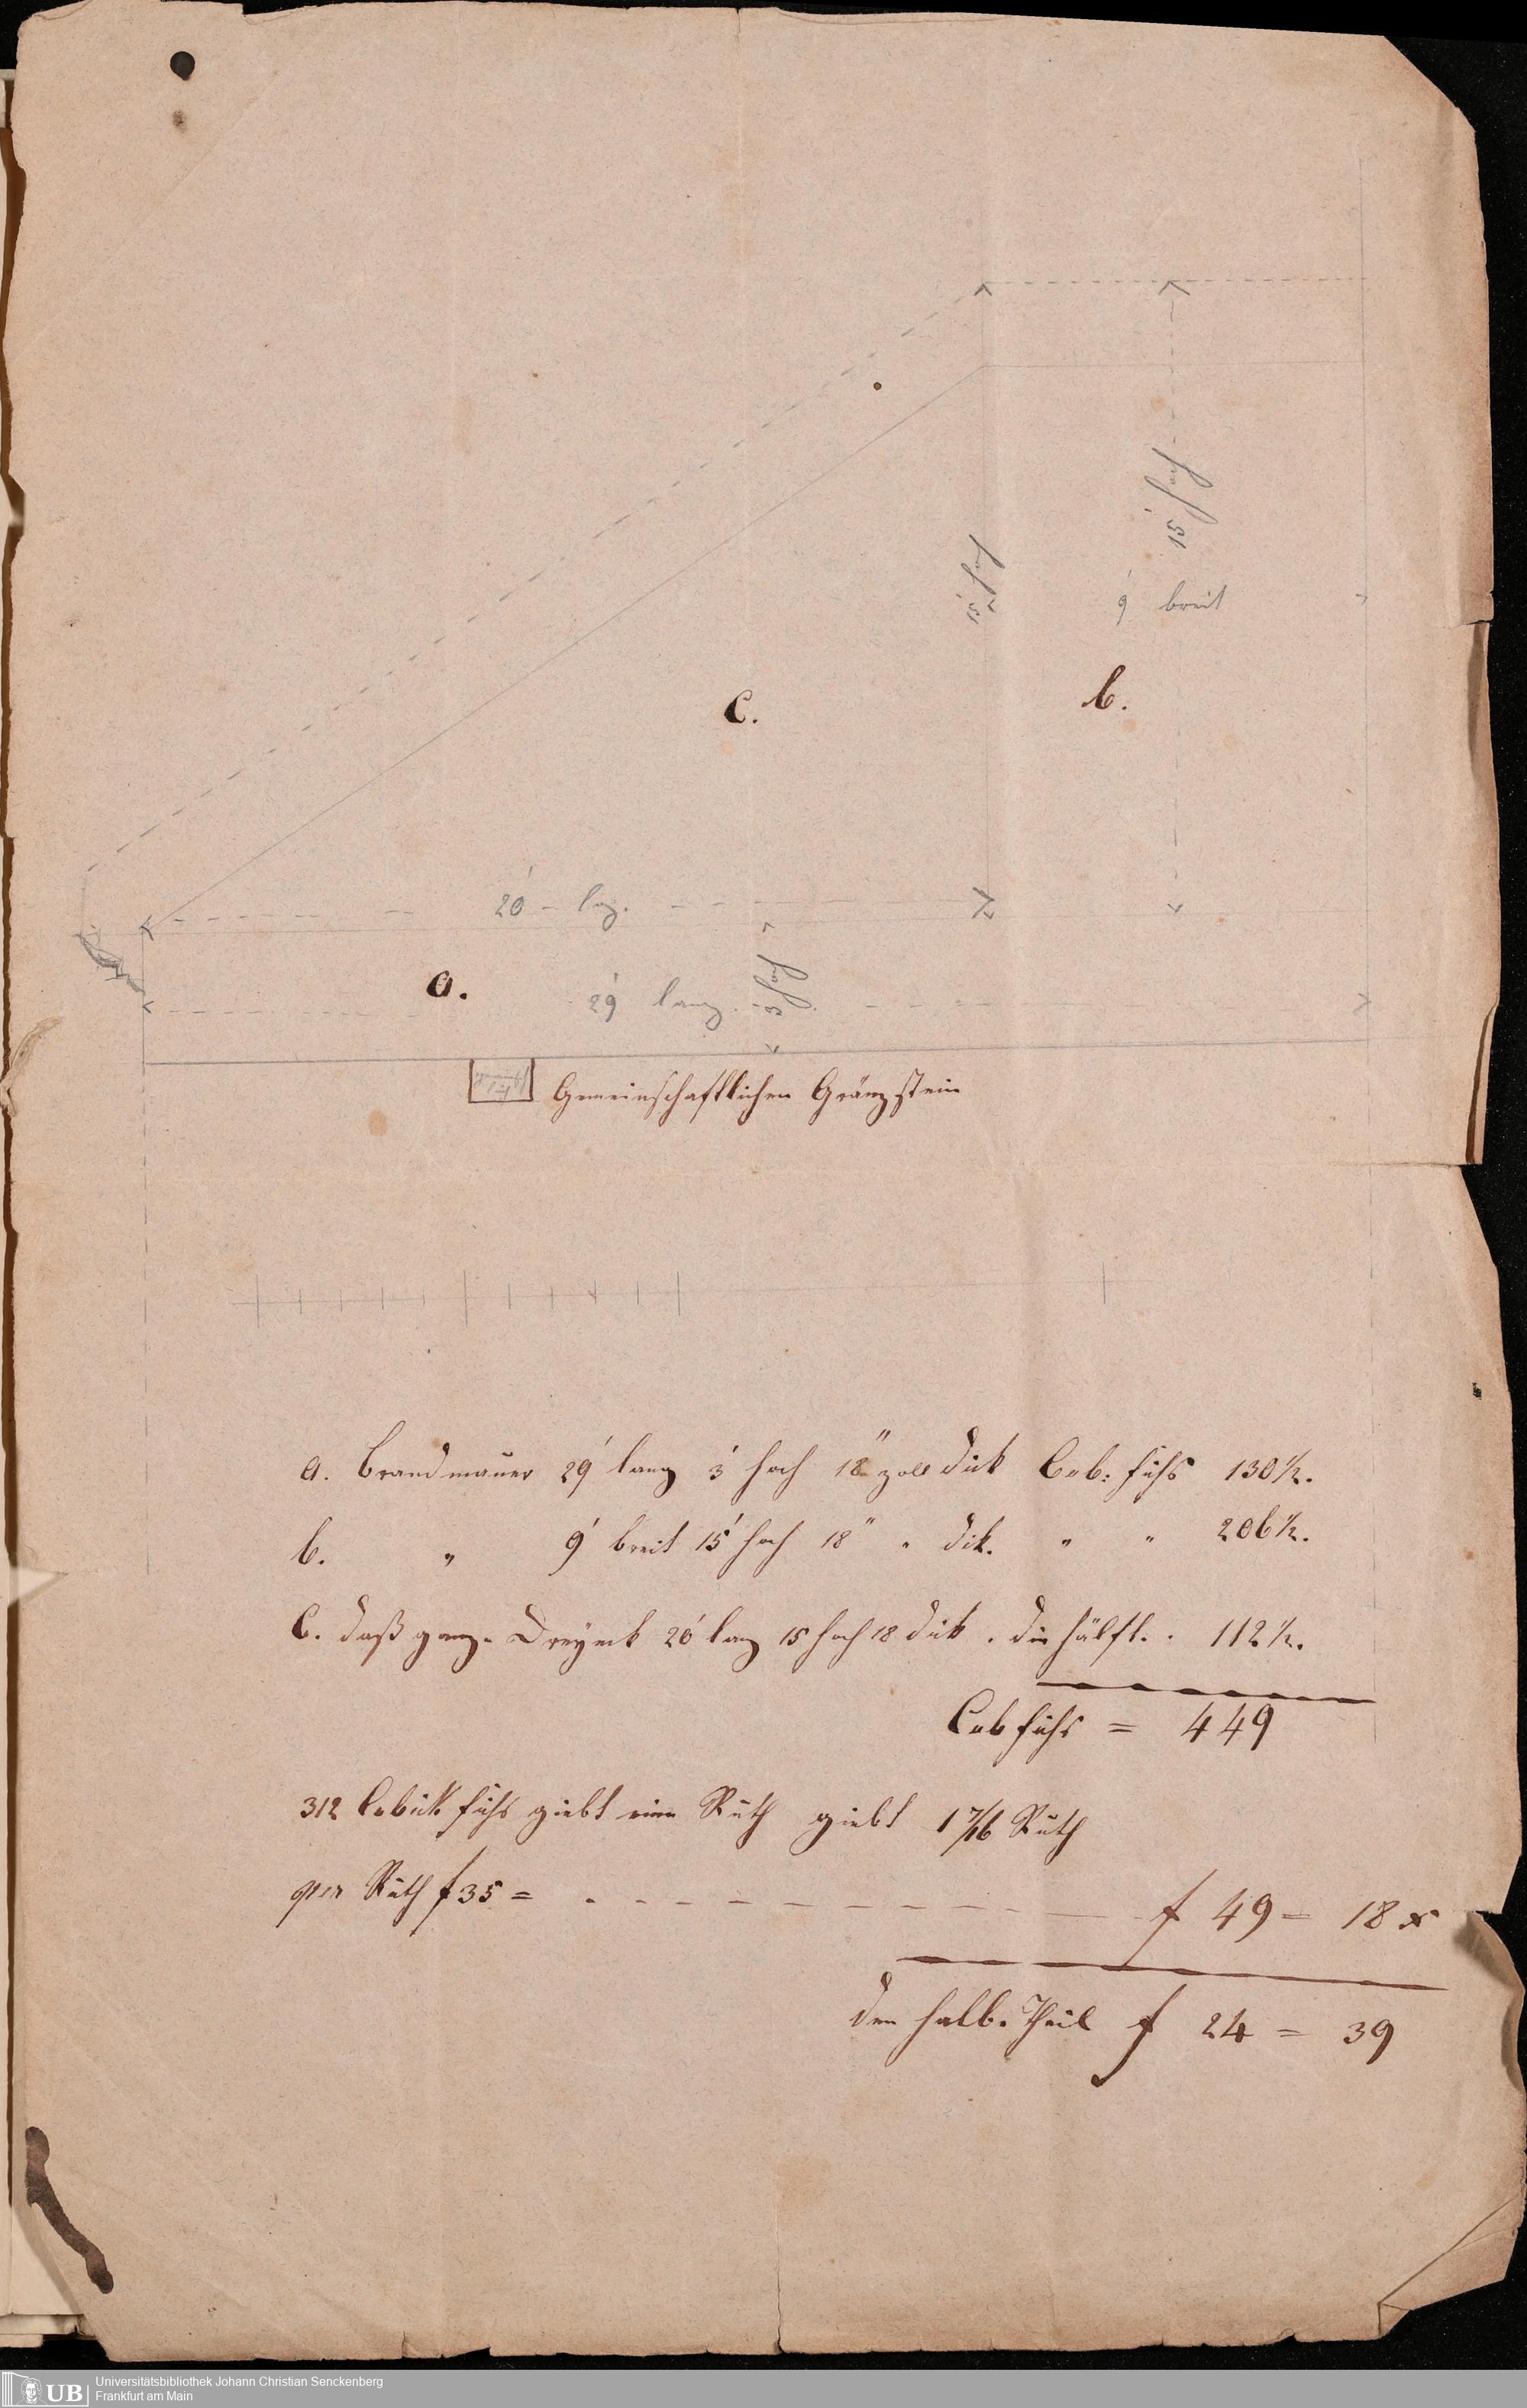 15' hoch
15' hoch
9' breit
C.
b.
20' - lag.
a.
29' lang.
3' hoch
Gemeinschaftlichen Gränzstein
a. Brandmauer 29' lang 3' hoch 18" zoll dick Cub: fuhs 130½.
b. " 9' breit 15' hoch 18" " dik. " " 206½.
C. daß ganz. Dreyeck 20' lang 15 hoch 18 dick . die hälft. . 112½.
Cub fuhs = 449
312 Cubik fuhs giebt eine Ruth giebt 1 7/16 Ruth
per Ruth f 35 = f 49 = 18 x
den halb. Theil f 24 = 39
UB
Universitätsbibliothek Johann Christian Senckenberg
Frankfurt am Main